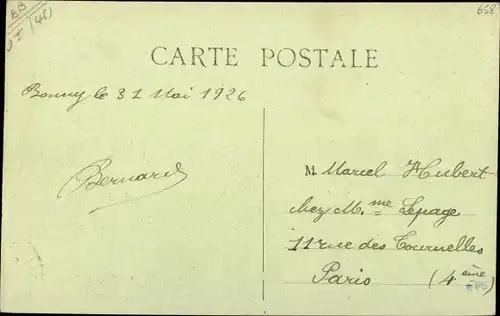 BB
658
CARTE POSTALE
Bonny le 31 Mai 1926
Bernard
M. Marcel Hubert
chez M.me Lepage
11 rue des Tournelles
Paris (4ème